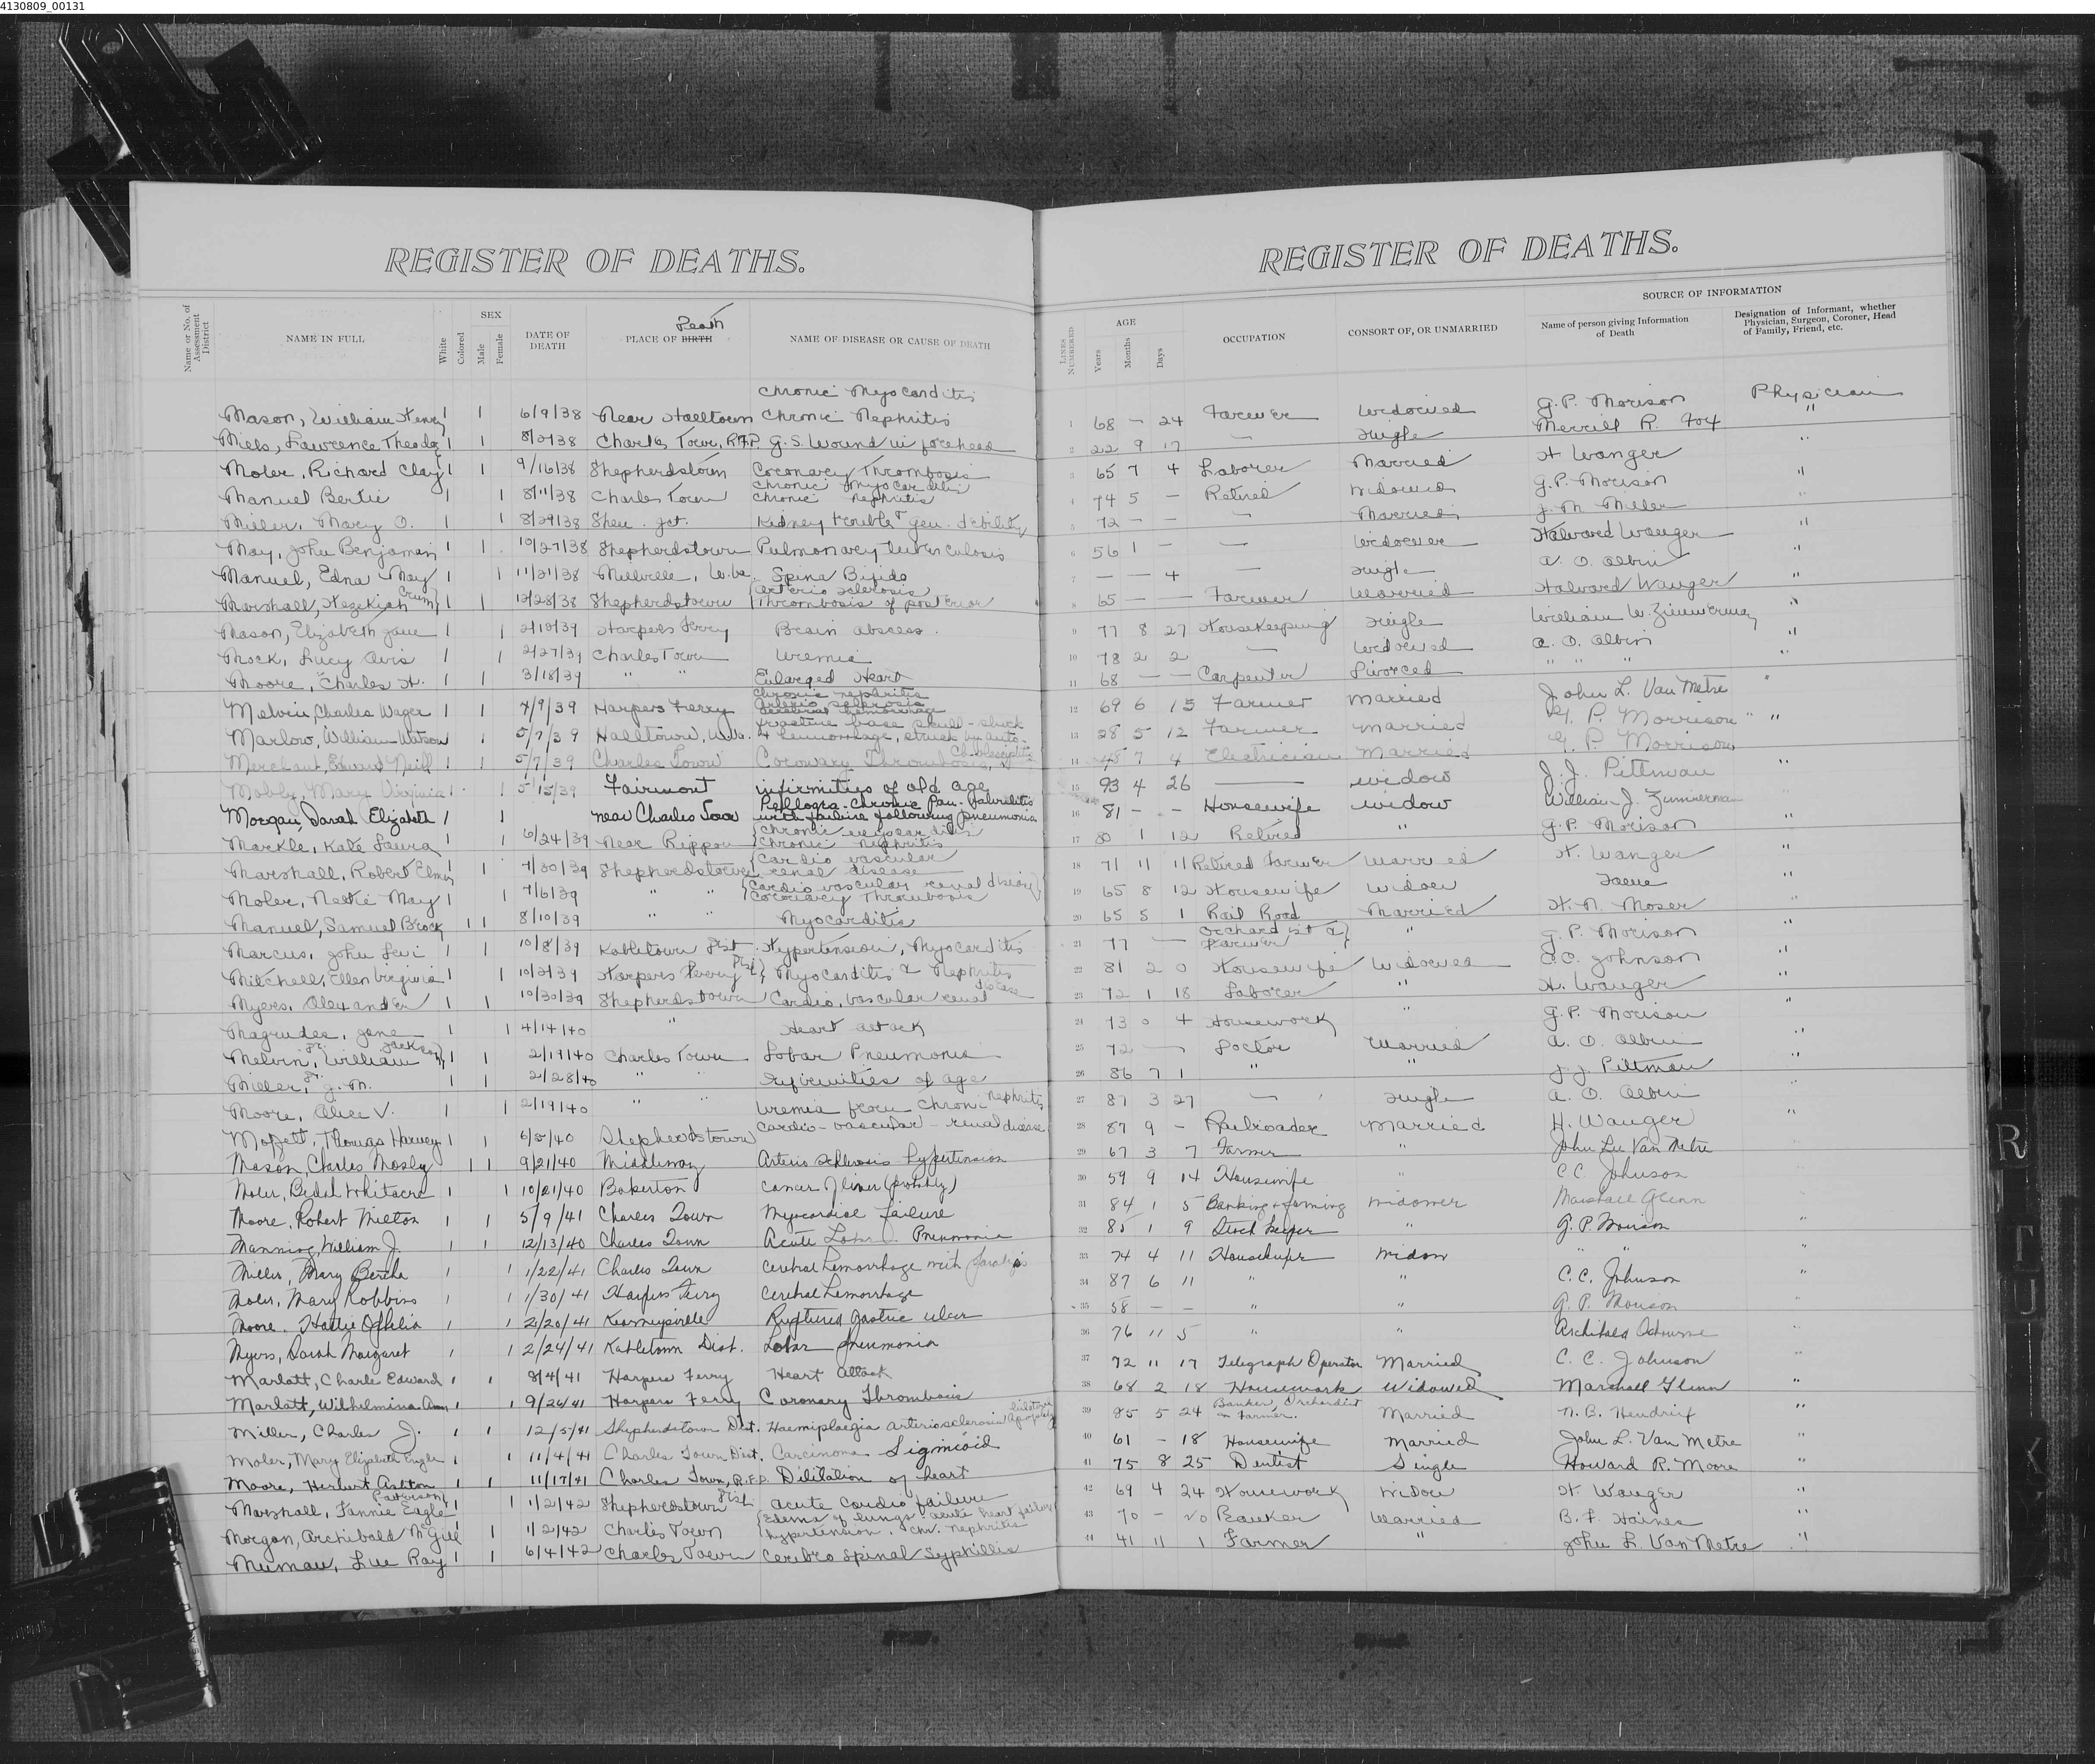 4130809_00131
REGISTER OF DEATHS.
Name or No. of Assessment District
NAME IN FULL
White
Colored
SEX
Male
Female
DATE OF DEATH
Death
PLACE OF BIRTH
NAME OF DISEASE OR CAUSE OF DEATH
Chronic Myocarditis
Mason, William Henry 1 1 6/9/38 Near Halltown Chronic Nephritis
Lawrence 1 1 Charles Town, G.S. Wound in forehead
Moler, Richard Clay 1 1 9/16/38 Shepherdstown Coronary Thrombosis
Chronic Myocarditis
Manuel Bertie 1 1 8/11/38 Charles Town Chronic Nephritis
Miller, Mary O. 1 1 8/29/38 Shen. Jct. Kidney trouble & gen. debility
May, John Benjamin 1 1 10/27/38 Shepherdstown Pulmonary tuberculosis
Manuel, Edna May 1 1 11/21/38 Millville, W.Va. Spina Bifida
Arterio Sclerosis
Marshall, Hezekiah Crum 1 1 12/28/38 Shepherdstown Thrombosis of posterior
Mason, Elizabeth Jane 1 1 2/18/39 Harpers Ferry Brain abscess.
Mock, Lucy Avis 1 1 2/27/39 Charles Town Uremia
Moore, Charles H. 1 1 3/18/39 " " Enlarged Heart
Chronic nephritis
Arterio sclerosis
Melvin, Charles Wager 1 1 4/9/39 Harpers Ferry cerebral hemorrhage
base skull - shock
Marlow, William Watson 1 5/7/39 Halltown, W.Va. & hemorrhage, struck by auto-
Merchant, Edward Neill 1 1 5/7/39 Charles Town Coronary Thrombosis,
Mobly, Mary Virginia 1 1 5/15/39 Fairmont infirmities of old age
Pellogra-Chronic
Morgan, Sarah Elizabeth 1 1 near Charles Town with failure following pneumonia
Chronic myocarditis
Markle, Kate Laura 1 1 6/24/39 Near Rippon Chronic Nephritis
Cardio vascular
Marshall, Robert Elmer 1 1 7/30/39 Shepherdstown renal disease
Cardio vascular renal disease
Moler, Nettie May 1 1 7/6/39 " " Coronary Thrombosis
Manuel, Samuel Brock 1 1 8/10/39 " " Myocarditis
Marcus, John Levi 1 1 10/8/39 Kabletown Dist. Hypertension, Myocarditis
Mitchell, Ellen Virginia 1 1 10/2/39 Harpers Ferry Dist. Myocarditis & Nephritis
Myers, Alexander 1 1 10/30/39 Shepherdstown Cardio, vascular renal disease
Magruder, Jane 1 1 4/14/40 " Heart attack
Melvin, Dr. William Jackson 1 1 2/19/40 Charles Town Lobar Pneumonia
Miller, Dr. J. M. 1 1 2/28/40 " " Infirmities of age
Moore, Alice V. 1 1 2/19/40 " " Uremia from Chronic Nephritis
Moffett, Thomas Harvey 1 1 6/5/40 Shepherdstown Cardio-vascular-renal disease
Mason, Charles Mosby 1 1 9/21/40 Middleway Arterio sclerosis hypertension
Moler, Bedah Whitacre 1 1 10/21/40 Bakerton Cancer of liver (probably)
Moore, Robert Milton 1 1 5/9/41 Charles Town Myocardial failure
Manning, William J. 1 1 12/13/40 Charles Town Acute Lobar Pneumonia
Miller, Mary Bertha 1 1 1/22/41 Charles Town Cerebral hemorrhage with paralysis
Moler, Mary Robbins 1 1 1/30/41 Harpers Ferry Cerebral hemorrhage
Moore, Hattie Ophelia 1 1 2/20/41 Kearneysville Ruptured gastric ulcer
Myers, Sarah Margaret 1 1 2/24/41 Kabletown Dist. Lobar pneumonia
Marlatt, Charles Edward 1 1 8/4/41 Harpers Ferry Heart attack
Marlatt, Wilhelmina Ann 1 1 9/24/41 Harpers Ferry Coronary Thrombosis
Miller, Charles J. 1 1 12/5/41 Shepherdstown Dist. Haemiplaegia arteriosclerosis
Moler, Mary Elizabeth Engle 1 1 11/4/41 Charles Town Dist. Carcinoma Sigmioid
Moore, Herbert Ashton 1 1 11/17/41 Charles Town, R.F.D. Dilitation of heart
Marshall, Fannie Eagle 1 1 1/2/42 Shepherdstown Dist. acute Cardio failure
Edema of lungs - acute heart failure
Morgan, Archibald McGill 1 1/2/42 Charles Town hypertension. chr. nephritis
Mumaw, Lue Ray 1 1 6/4/42 Charles Town Cerebro Spinal Syphillis
REGISTER OF DEATHS.
LINES NUMBERED
AGE
Years
Months
Days
OCCUPATION
CONSORT OF, OR UNMARRIED
SOURCE OF INFORMATION
Name of person giving Information of Death
Designation of Informant, whether Physician, Surgeon, Coroner, Head of Family, Friend, etc.
1 68 — 24 Farmer Widowed G. P. Morison Physician
2 22 9 17 — Single Merrill R. Fox "
3 65 7 4 Laborer Married H Wanger "
4 74 5 — Retired Widowed G. P. Morison "
5 72 — — — Married J. M. Miller "
6 56 1 — — Widower Halvard Wanger "
7 — — 4 — Single A. O. Albin "
8 65 — — Farmer Married Halvard Wanger "
9 77 8 27 Housekeeping Single William W. Zimmerman "
10 78 2 2 — Widowed A. O. Albin "
11 68 — — Carpenter Divorced " " " "
12 69 6 15 Farmer Married John L. Van Metre "
13 28 5 12 Farmer Married G. P. Morrison " "
14 45 7 4 Electrician Married G. P. Morrison
15 93 4 26 — Widow J. J. Pittman "
16 81 - - Housewife Widow William J. Zimmerman "
17 80 1 12 Retired " G. P. Morison "
18 71 11 11 Retired Farmer Married H. Wanger "
19 65 8 12 Housewife Widow Same "
20 65 5 1 Rail Road Married H. N. Moser "
21 77 — Orchardist & Farmer " G. P. Morison "
22 81 2 0 Housewife Widowed C. C. Johnson "
23 72 1 18 Laborer " H. Wanger "
24 73 0 4 Housework " G. P. Morison "
25 72 — Doctor Married A. O. Albin "
26 86 7 1 " " J. J. Pittman "
27 87 3 27 — Single A. O. Albin "
28 87 9 - Railroader Married H. Wanger "
29 67 3 7 Farmer " John Lee Van Metre
30 59 9 14 Housewife " C C Johnson
31 84 1 5 Banking & farming Widower Marshall Glenn
32 85 1 9 Stock keeper " G. P. Morison "
33 74 4 11 Housekeeper Widow " " "
34 87 6 11 " " C. C. Johnson "
35 58 — — " " G. P. Morison "
36 76 11 5 " " Archibald "
37 72 11 17 Telegraph Operator Married C. C. Johnson "
38 68 2 18 Housework Widowed Marshall Glenn "
39 85 5 24 Banker, Orchardist Farmer. Married N. B. Hendrix "
40 61 - 18 Housewife Married John L. Van Metre "
41 75 8 25 Dentist Single Howard R. Moore "
42 69 4 24 Housework Widow H Wanger "
43 70 — 20 Banker Married B. F. Haines "
44 41 11 1 Farmer " John L. Van Metre "